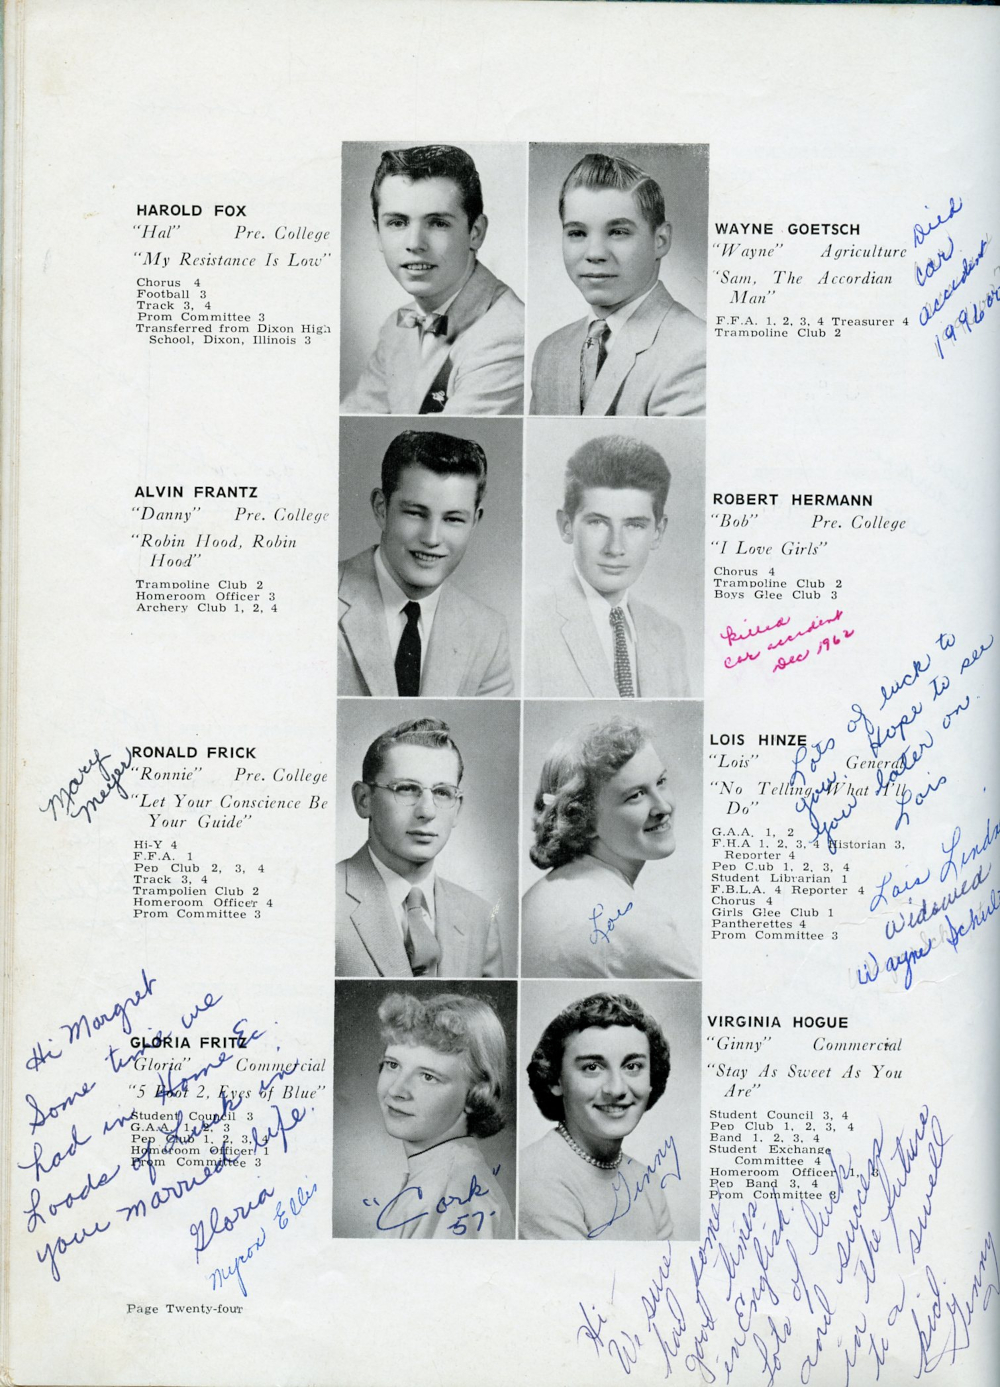 HAROLD FOX
"Hal" Pre. College
"My Resistance Is Low"
Chorus 4
Football 3
Track 3, 4
Prom Committee 3
Transferred from Dixon High
School, Dixon, Illinois 3
WAYNE GOETSCH
"Wayne" Agriculture
"Sam, The Accordian
Man"
F.F.A. 1, 2, 3, 4 Treasurer 4
Trampoline Club 2
Died
car
accident
ALVIN FRANTZ
"Danny" Pre. College
"Robin Hood, Robin
Hood"
Trampoline Club 2
Homeroom Officer 3
Archery Club 1, 2, 4
ROBERT HERMANN
"Bob" Pre. College
"I Love Girls"
Chorus 4
Trampoline Club 2
Boys Glee Club 3
killed
car accident
Dec 1962
RONALD FRICK
"Ronnie" Pre. College
"Let Your Conscience Be
Your Guide"
Hi-Y 4
F.F.A. 1
Pep Club 2, 3, 4
Track 3, 4
Trampolien Club 2
Homeroom Officer 4
Prom Committee 3
Mary
Meyers
LOIS HINZE
"Lois" General
"No Telling What I'll
Do"
G.A.A. 1, 2
F.H.A 1, 2, 3, 4 Historian 3,
Reporter 4
Pep C.ub 1, 2, 3, 4
Student Librarian 1
F.B.L.A. 4 Reporter 4
Chorus 4
Girls Glee Club 1
Pantherettes 4
Prom Committee 3
Lots of luck to
you. Hope to see
you later on.
Lois
Lois
Widowed
Wayne
GLORIA FRITZ
"Gloria" Commercial
"5 Foot 2, Eyes of Blue"
Student Council 3
G.A.A. 1, 2, 3
Pep Club 1, 2, 3, 4
Homeroom Officer 1
Prom Committee 3
Hi Margret
Some time we
had in Home Ec.
Loads of luck in
your married life.
Gloria
Myron Ellis
VIRGINIA HOGUE
"Ginny" Commercial
"Stay As Sweet As You
Are"
Student Council 3, 4
Pep Club 1, 2, 3, 4
Band 1, 2, 3, 4
Student Exchange
Committee 4
Homeroom Officer 1, 3
Pep Band 3, 4
Prom Committee 3
Lois
"Cork"
57.
Ginny
Hi
We sure
had some
good times
in English.
Lots of luck
and success
in the future
to a swell
kid.
Ginny
Page Twenty-four